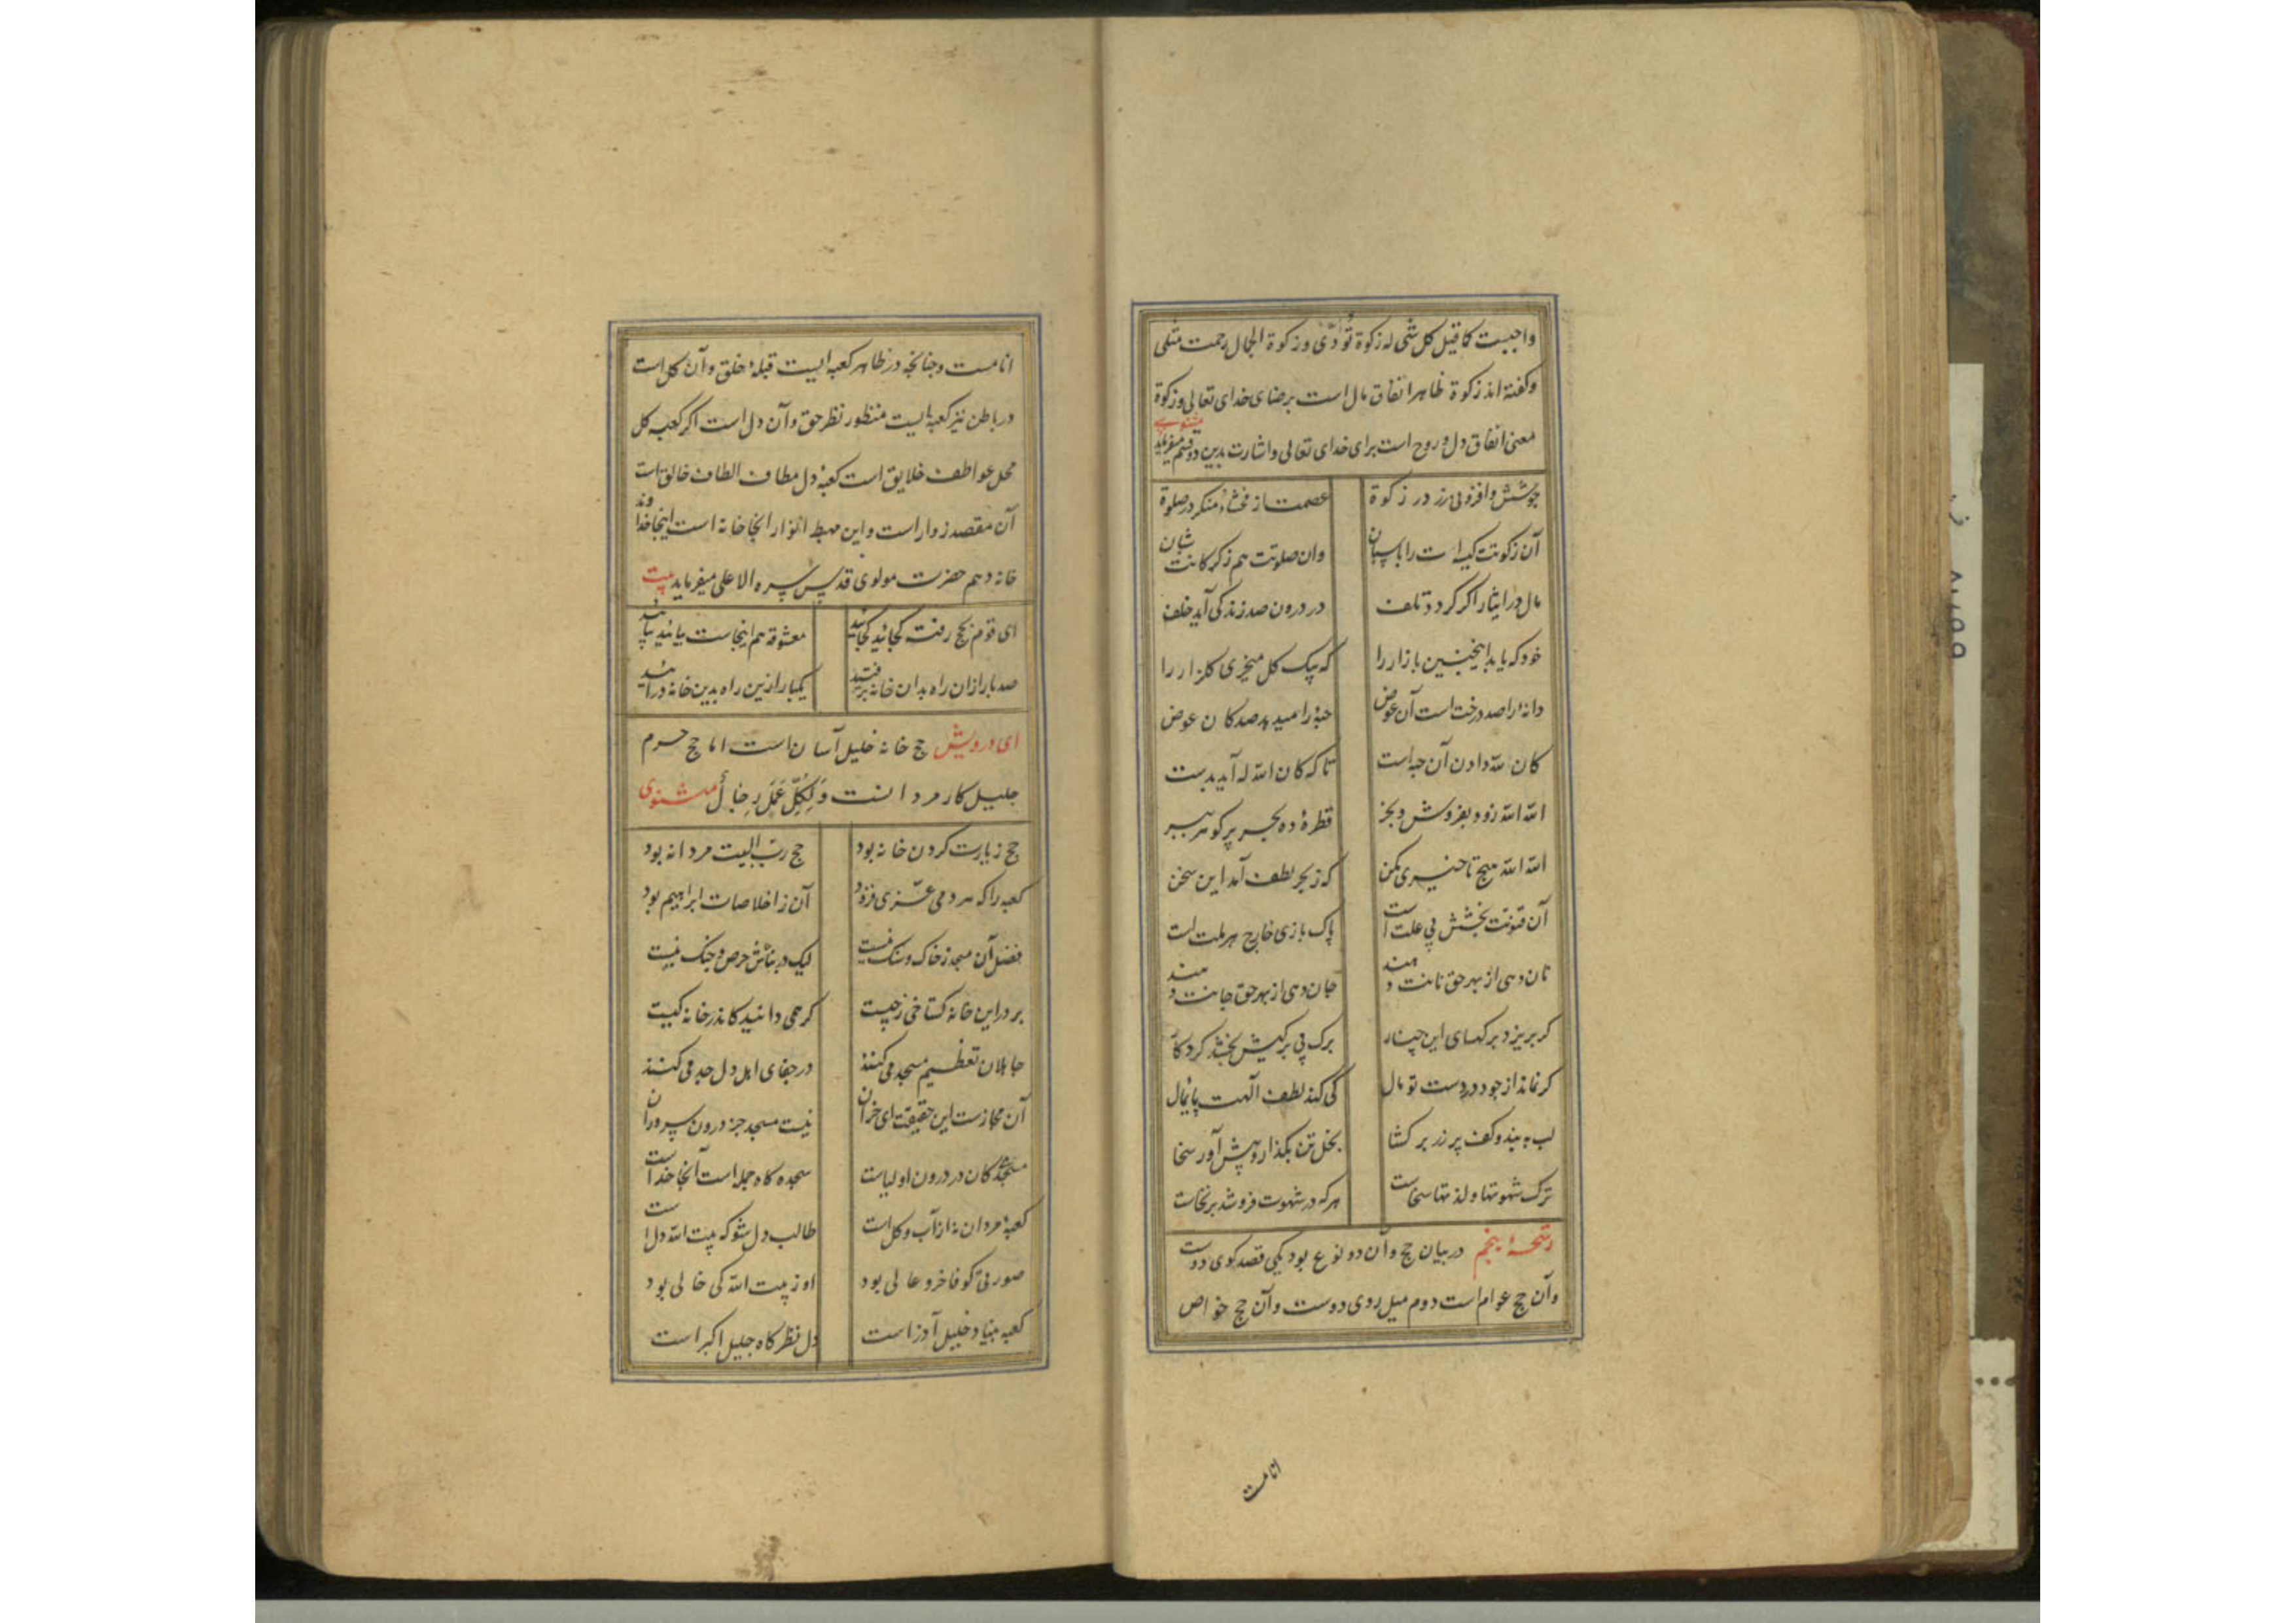 واجبست کما قیل کل شی له زکوة تؤدّی وزکوة الجمال رحمت مثلی
وکفته اند زکوة ظاهر انفاق مال است برضای خدای تعالی وزکوة
معنی انفاق دل وروح است برای خدای تعالی واشارت بدین دو قسم میفرماید مثنوی
جوشش وافزونی زر در زکوة عصمت از فحشا ومنکر در صلوة
آن زکوتت کیسه ات را پاسبان وان صلوتت هم زکرکانت شبان
مال در ایثار اکر کردد تلف در درون صد زندکی آید خلف
خود که یابد اینچنین بازار را که بیک کل میخری کلزار را
دانهٔ را صد درخت است آن عوض حبهٔ را میدهد صد کان عوض
کان لله دادن آن حبه است تا که کان الله له آید بدست
الله الله زود بفروش وبخر قطرهٔ ده بحر پر کوهر ببر
الله الله هیچ تاخیری مکن که ز بحر لطف آمد این سخن
آن فتوت بخشش بی علت است پاک بازی خارج هر ملت است
نان دهی از بهر حق نانت دهند جان دهی از بهر حق جانت دهند
کر بریزد برکهای این چنار برک بی برکیش بخشد کردکار
کر نماند از جود در دست تو مال کی کند لطف الهت پایمال
لب به بند وکف پر زر بر کشا بخل تن بکذار وپیش آور سخا
ترک شهوتها ولذتها سخاست هرکه در شهوت فروشد برنخاست
رشحهٔ پنجم در بیان حج وآن دو نوع بود یکی قصد کوی دوست
وآن حج عوام است دوم میل روی دوست وآن حج خواص
انامست
انامست وچنانچه در ظاهر کعبه ایست قبلهٔ خلق وآن کل است
در باطن نیز کعبه ایست منظور نظر حق وآن دل است اکر کعبه کل
محل عواطف خلایق است کعبهٔ دل مطاف الطاف خالق است
آن مقصد زوار است واین مهبط انوار انجا خانه است اینجا خداوند
خانه وهم حضرت مولوی قدس سره الاعلی میفرماید بیت
ای قوم بحج رفته کجائید کجائید معشوقه هم اینجاست بیائید بیائید
صد بار ازان راه بدان خانه برفتید یکبار ازین راه بدین خانه درائید
ای درویش حج خانه خلیل آسان است اما حج حرم
جلیل کار مردانست وَلِکُلِّ عَمَلٍ رِجَالٌ مثنوی
حج زیارت کردن خانه بود حج ربّ البیت مردانه بود
کعبه را که هر دمی عزّی فزود آن ز اخلاصات ابراهیم بود
فضل آن مسجد ز خاک وسنک نیست لیک در بناش حرص وجنک نیست
بر در این خانه کستاخی ز چیست کر همی دانید کاندر خانه کیست
جاهلان تعظیم مسجد می کنند در جفای اهل دل جد می کنند
آن مجازست این حقیقت ای خران نیست مسجد جز درون سروران
مسجدی کان در درون اولیاست سجده کاه جمله است آنجا خداست
کعبهٔ مردان نه از آب وکل است طالب دل شو که بیت الله دل است
صورتی کو فاخر وعالی بود او ز بیت الله کی خالی بود
کعبه بنیاد خلیل آذر است دل نظرکاه جلیل اکبر است